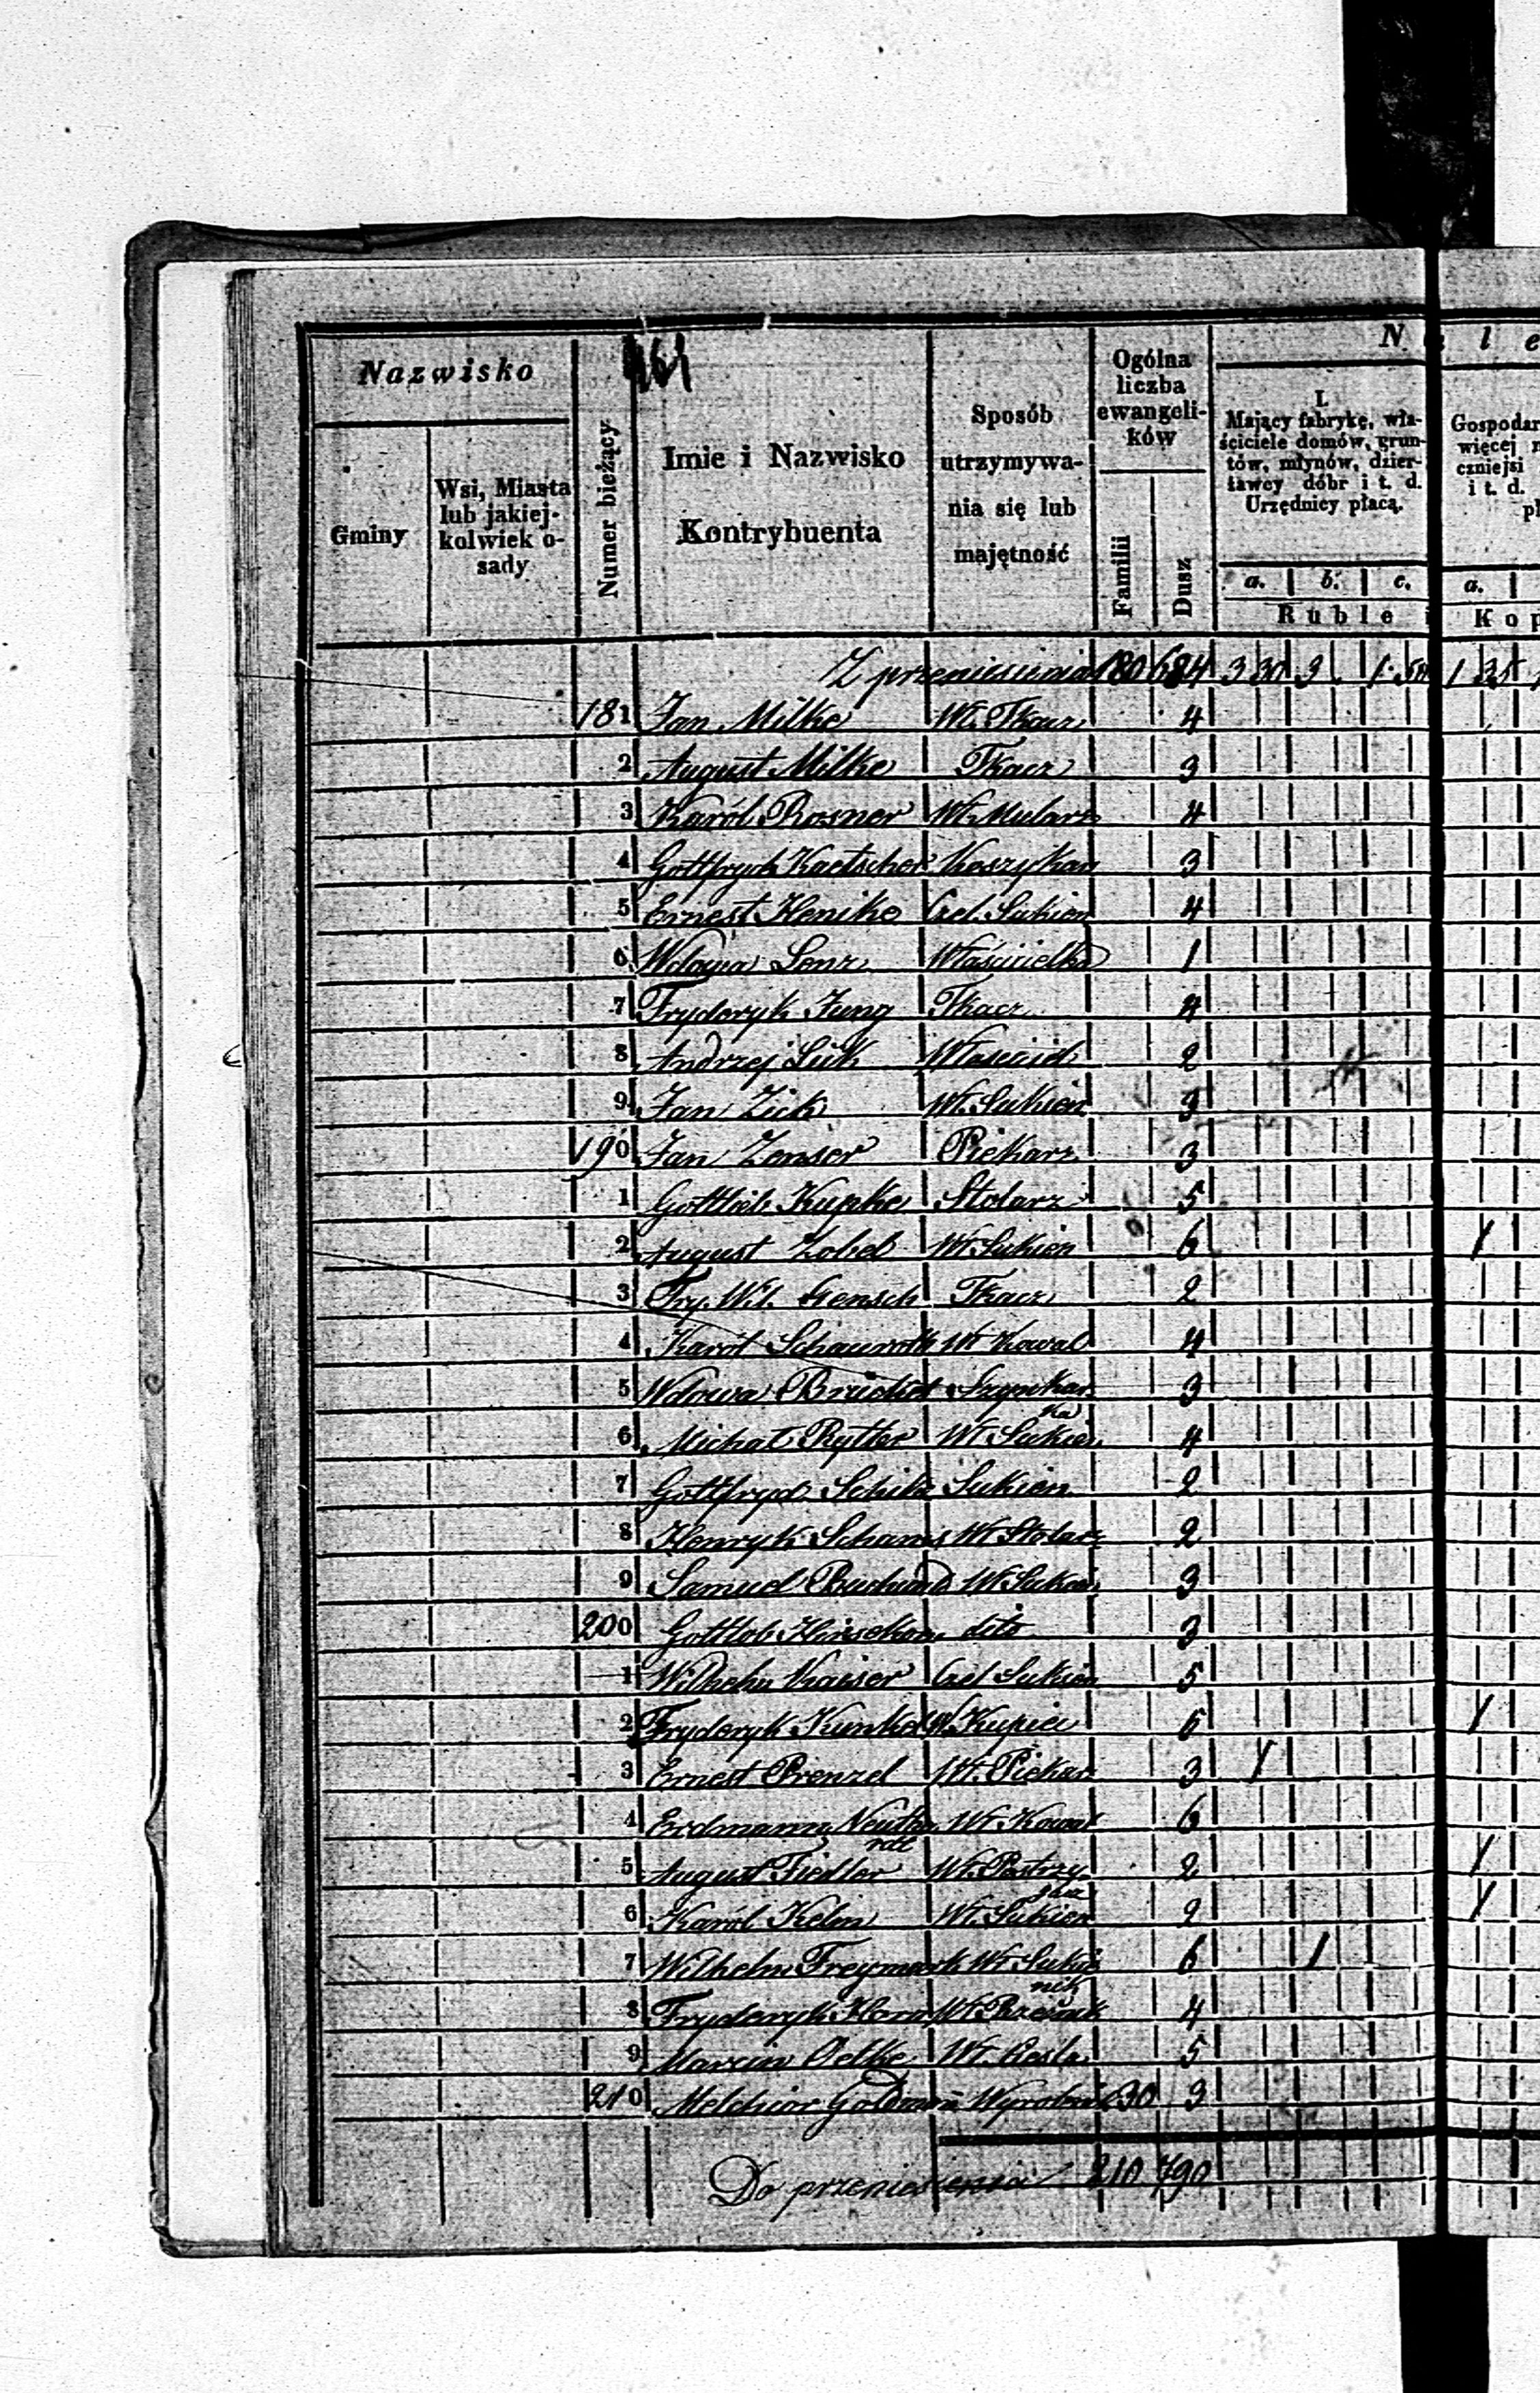 Nazwisko
Gminy
Wsi, Miasta
lub jakiej-
kolwiek o-
sady
Numer bieżący
Imie i Nazwisko
Kontrybuenta
Sposób
utrzymywa-
nia się lub
majętność
Ogólna
liczba
ewangeli-
ków
Familii
Dusz
N l e
I.
Mający fabrykę, wła-
ściciele domów, grun-
tów, młynów, dzier-
ławcy dóbr i t. d.
Urzędnicy płacą.
a. b. c.
Ruble
Gospodar
więcej
czniejsi
i t. d.
pł
a.
Kop
Z przeniesienia 180 684 3 30 3 1 50 1 35
181 Jan Milke Wł. Tkacz 4
2 August Milke Tkacz 3
3 Karól Rosner Wł. Mularz 4
4 Gottfryd Kaetscher Koszykar 3
5 Ernest Henike Czel. Sukien 4
6 Wdowa Lenz Właścicielka 1
7 Fryderyk Jung Tkacz 4
8 Andrzej Luk Właściciel 2
9 Jan Zick Wł. Sukien 3
190 Jan Zenser Piekarz 3
1 Gottlieb Kupke Stolarz 5
2 August Zobel Wł. Sukien 6 1
3 Fry. Wil. Hensch Tkacz 2
4 Karól Schauroth Wł Kowal 4
5 Wdowa Szynkar 3
ka
6 Michał Rytter Wł Sukien 4
7 Gottfryd Sukien 2
8 Henryk Wł Stolarz 2
9 Samuel Wł Sukien 3
200 Gottlob dito 3
1 Wilhelm Kaiser Czel Sukien 5
2 Fryderyk Kunkel Wł Kupiec 6 1
3 Ernest Prenzel Wł. Piekar 3 1
4 Erdmann Wł. Kowal 6
5 August Fiedler Wł. Postrzy 2 1
gacz
6 Karól Kelm Wł. Sukien 2 1
7 Wilhelm Freymark Wł Sukie 6 1
nik
8 Fryderyk Horn Wł. Rzeźnik 4
9 Marcin Oelke Wł. Cieśla 5
210 Melchior Goldman Wyrobnik 30 3
Do przeniesienia 210 790